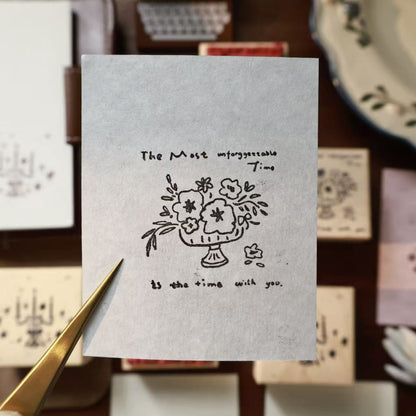 The Most unforgettable
Time
is the time with you.